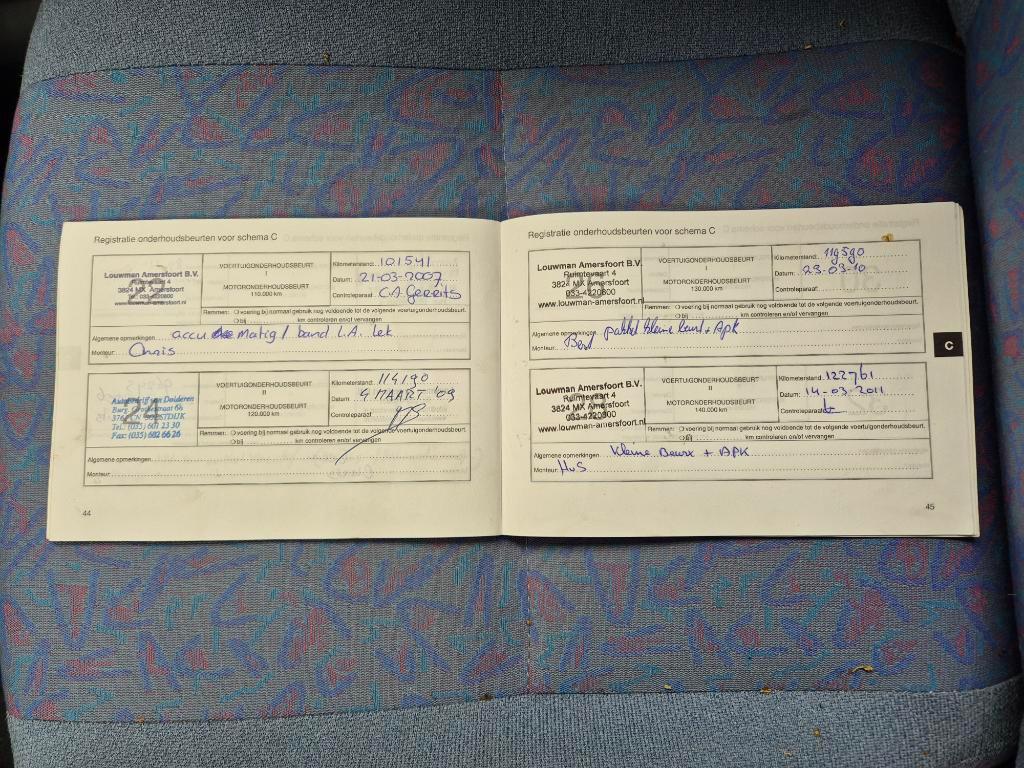 Registratie onderhoudsbeurten voor schema C
Louwman Amersfoort B.V.
Ruimtevaart 4
3824 MX Amersfoort
033-4220800
www.louwman-amersfoort.nl
VOERTUIGONDERHOUDSBEURT
I
MOTORONDERHOUDSBEURT
110.000 km
Kilometerstand: 101541
Datum: 21-03-2007
Controleparaaf: C.A Gerrits
Remmen: voering bij normaal gebruik nog voldoende tot de volgende voertuigonderhoudsbeurt.
bij km controleren en/of vervangen
Algemene opmerkingen: accu Matig / band L.A. Lek
Monteur: Chris
Autobedrijf van Dolderen
Tel. (035) 601 23 30
Fax: (035) 602 66 26
VOERTUIGONDERHOUDSBEURT
II
MOTORONDERHOUDSBEURT
120.000 km
Kilometerstand: 114190
Datum: 9 MAART '09
Controleparaaf:
Remmen: voering bij normaal gebruik nog voldoende tot de volgende voertuigonderhoudsbeurt.
bij km controleren en/of vervangen
Algemene opmerkingen:
Monteur:
44
Registratie onderhoudsbeurten voor schema C
Louwman Amersfoort B.V.
Ruimtevaart 4
3824 MX Amersfoort
033-4220800
www.louwman-amersfoort.nl
VOERTUIGONDERHOUDSBEURT
I
MOTORONDERHOUDSBEURT
130.000 km
Kilometerstand: 119590
Datum: 23-03-10
Controleparaaf:
Remmen: voering bij normaal gebruik nog voldoende tot de volgende voertuigonderhoudsbeurt.
bij km controleren en/of vervangen
Algemene opmerkingen: kleine beurt + Apk
Monteur: Bert
C
Louwman Amersfoort B.V.
Ruimtevaart 4
3824 MX Amersfoort
033-4220800
www.louwman-amersfoort.nl
VOERTUIGONDERHOUDSBEURT
II
MOTORONDERHOUDSBEURT
140.000 km
Kilometerstand: 122761
Datum: 14-03-2011
Controleparaaf:
Remmen: voering bij normaal gebruik nog voldoende tot de volgende voertuigonderhoudsbeurt.
bij km controleren en/of vervangen
Algemene opmerkingen: Kleine Beurt + APK
Monteur: HvS
45